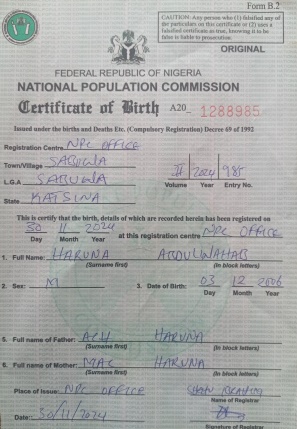 Form B.2
CAUTION: Any person who (1) falsified any of the particulars on this certificate or (2) uses a falsified certificate as true, knowing it to be false is liable to prosecution.
ORIGINAL
FEDERAL REPUBLIC OF NIGERIA
NATIONAL POPULATION COMMISSION
Certificate of Birth A20_ 1288985
Issued under the births and Deaths Etc. (Compulsory Registration) Decree 69 of 1992
Registration Centre NPC OFFICE
Town/Village SABUWA
II 2024 985
L.G.A SABUWA
Volume Year Entry No.
State KATSINA
This is certify that the birth, details of which are recorded herein has been registered on
30 11 2024 at this registration centre NPC OFFICE
Day Month Year
1. Full Name: HARUNA ABDULWAHAB
(Surname first) (In block letters)
2. Sex: M 3. Date of Birth: 03 12 2006
Day Month Year
5. Full name of Father: HARUNA
(Surname first) (In block letters)
6. Full name of Mother: HARUNA
(Surname first) (In block letters)
Place of Issue: NPC OFFICE IBRAHIM
Name of Registrar
Date: 30/11/2024
Signature of Registrar